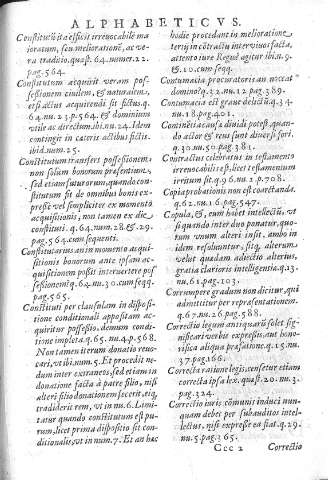 ALPHABETICVS.
Constitutū ita esse si irreuocabile ma
ioratum, seu melioratione, ac ve-
ra traditio. quæst. 64. numer. 22.
pag. 564.
Constitutum acquirit veram pos-
sessionem ciuilem, & naturalem,
etsi actus acquirendi sit fictus. q.
64. nu. 23. p. 564. & dominium
vtile ac directum. ibi. nu. 24. Idem
contingit in cæteris actibus fictis.
ibid. num. 25.
Constitutum transfert possessionem,
non solum bonorum præsentium,
sed etiam futurorum, quando con-
stitutum fit de omnibus bonis ex-
presse vel simpliciter ex momento
acquisitionis, non tamen ex die
constituti. q. 64. num. 28. & 29.
pag. 564. cum sequent.
Constitutarius an in momento acqui-
sitionis bonorum ante ipsam ac-
quisitionem possit interuertere pos
sessionem. q. 64. nu. 30. cum seqq.
pag. 565.
Constituti per clausulam in disposi-
tione conditionali appositam ac-
quiritur possessio, demum condi-
tione impleta. q. 65. nu. 4. p. 568.
Non tamen iterum donatio reuo-
cari, vt ibi. num. 5. Et procedit ne-
dum inter extraneos, sed etiam in
donatione facta à patre filio, nisi
alteri filio donationem fecerit, eiq;
tradiderit rem, vt in nu. 6. Limi-
tatur quando constitutum est pu-
rum, licet prima dispositio sit con-
ditionalis, vt in num. 7. Et an hæc
hodie procedant in melioratione
teriij in cōtractu inter viuos facta,
attento iure Regio agitur ibi. nu. 9.
& 10. cum seqq.
Contumacia procuratoris an noceat
domino. q. 32. nu. 12. pag. 389.
Contumacia est graue delictū. q. 34.
nu. 18. pag. 401.
Continētia causæ diuidi potest, quan-
do actor & reus sunt diuersi fori.
q. 30. nu. 50. pag. 381.
Contractus celebratus in testamento
irreuocabilis est, licet testamentum
irritum sit. q. 96. nu. 2. p. 708.
Copia probationis non est coarctanda.
q. 62. nu. 16. pag. 547.
Copula, &, cum habet intellectū, vt
si quando inter duo ponatur, quo-
rum vnum alteri insit, ambo in
idem resoluuntur, sitq; alterum
velut quædam adiectio alterius,
gratia clarioris intelligentiæ. q. 13.
nu. 61. pag. 103.
Corrumpere gradum non dicitur, qui
admittitur per repræsentationem.
q. 67. nu. 26. pag. 588.
Correctio legum antiquarū solet sig-
nificari verbis expressis, aut hono-
rifica aliqua præfatione. q. 15. nu.
37. pag. 166.
Correcta ratione legis, censetur etiam
correcta ipsa lex. quæst. 20. nu. 3.
pag. 324.
Correctio iuris cōmunis induci nun-
quam debet per subauditos intel-
lectus, nisi expresse ea fiat. q. 29.
nu. 5. pag. 365.
Ccc 2 Correctio